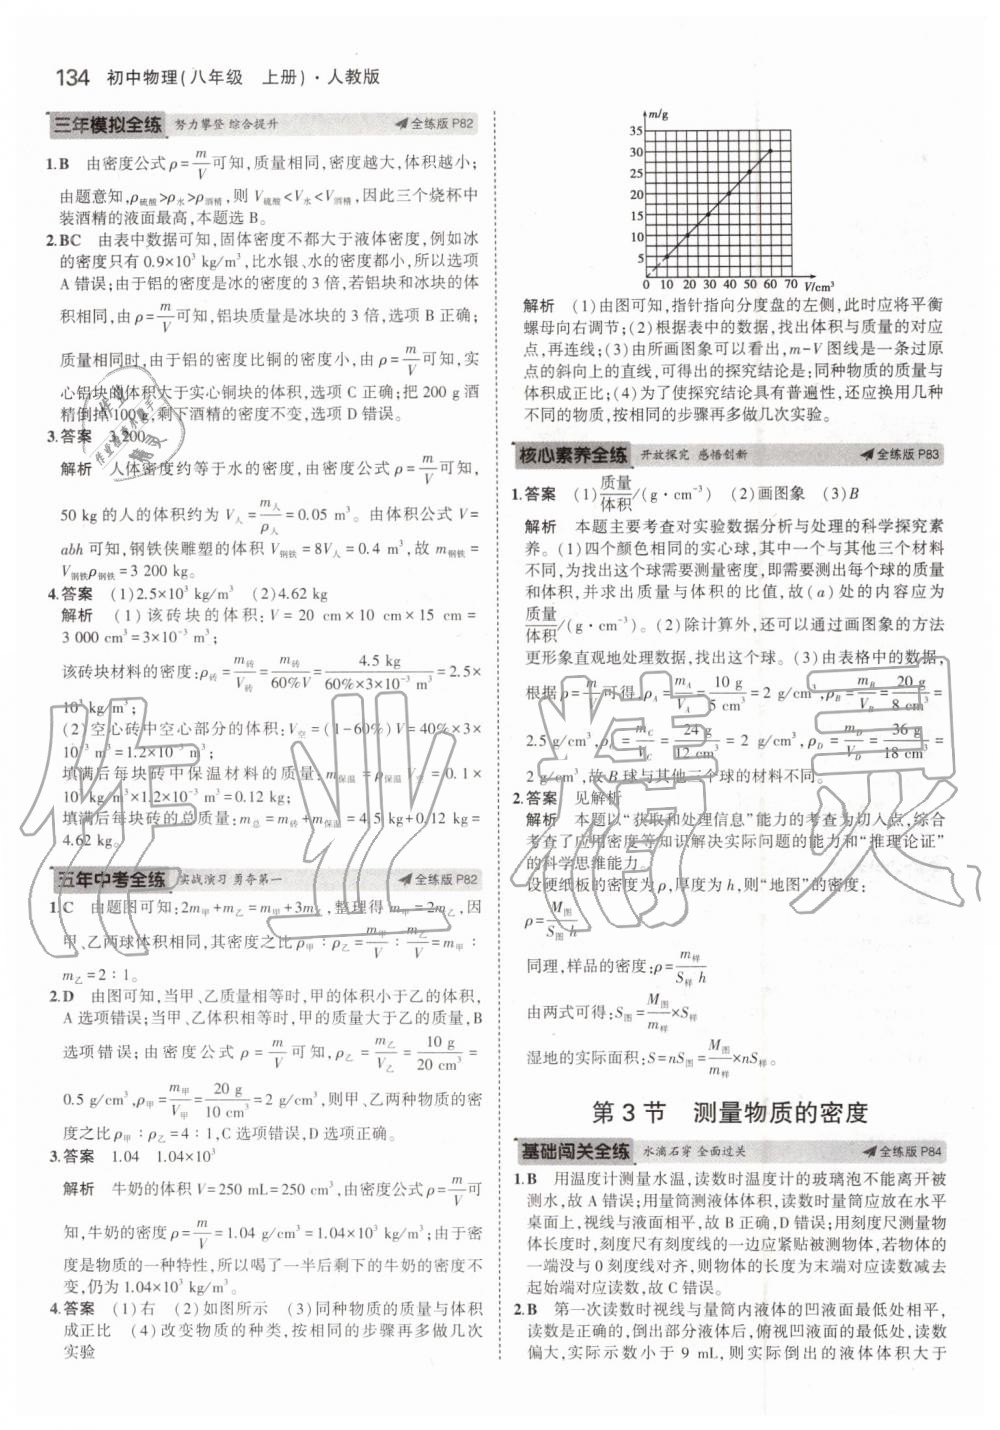 134 初中物理(八年级 上册)·人教版
三年模拟全练 努力攀登 综合提升 全练版 P82
1.B 由密度公式ρ=m/V可知,质量相同,密度越大,体积越小;
由题意知,ρ硫酸>ρ水>ρ酒精,则 V硫酸<V水<V酒精,因此三个烧杯中
装酒精的液面最高,本题选 B。
2.BC 由表中数据可知,固体密度不都大于液体密度,例如冰
的密度只有 0.9×10³ kg/m³,比水银、水的密度都小,所以选项
A 错误;由于铝的密度是冰的密度的 3 倍,若铝块和冰块的体
积相同,由ρ=m/V可知,铝块质量是冰块的 3 倍,选项 B 正确;
质量相同时,由于铝的密度比铜的密度小,由ρ=m/V可知,实
心铝块的体积大于实心铜块的体积,选项 C 正确;把 200 g 酒
精倒掉 100 g,剩下酒精的密度不变,选项 D 错误。
3.答案 3 200
解析 人体密度约等于水的密度,由密度公式ρ=m/V可知,
50 kg 的人的体积约为 V人=m人/ρ人=0.05 m³。由体积公式 V=
abh 可知,钢铁侠雕塑的体积 V钢铁=8V人=0.4 m³,故 m钢铁=
V钢铁ρ钢铁=3 200 kg。
4.答案 (1)2.5×10³ kg/m³ (2)4.62 kg
解析 (1)该砖块的体积:V=20 cm×10 cm×15 cm=
3 000 cm³=3×10⁻³ m³;
该砖块材料的密度:ρ砖=m砖/V砖=m砖/60%V=4.5 kg/60%×3×10⁻³ m³=2.5×
10³ kg/m³;
(2)空心砖中空心部分的体积:V空=(1-60%)V=40%×3×
10⁻³ m³=1.2×10⁻³ m³;
填满后每块砖中保温材料的质量:m保温=ρ保温V空=0.1×
10³ kg/m³×1.2×10⁻³ m³=0.12 kg;
填满后每块砖的总质量:m总=m砖+m保温=4.5 kg+0.12 kg=
4.62 kg。
五年中考全练 实战演习 勇夺第一 全练版 P82
1.C 由题图可知:2m甲+m乙=m甲+3m乙,整理得 m甲=2m乙,因
甲、乙两球体积相同,其密度之比ρ甲∶ρ乙=m甲/V∶m乙/V=m甲∶
m乙=2∶1。
2.D 由图可知,当甲、乙质量相等时,甲的体积小于乙的体积,
A 选项错误;当甲、乙体积相等时,甲的质量大于乙的质量,B
选项错误;由密度公式ρ=m/V可知,ρ乙=m乙/V乙=10 g/20 cm³=
0.5 g/cm³,ρ甲=m甲/V甲=20 g/10 cm³=2 g/cm³,则甲、乙两种物质的密
度之比ρ甲∶ρ乙=4∶1,C 选项错误,D 选项正确。
3.答案 1.04 1.04×10³
解析 牛奶的体积 V=250 mL=250 cm³,由密度公式ρ=m/V可
知,牛奶的密度ρ=m/V=1.04 g/cm³=1.04×10³ kg/m³;由于密
度是物质的一种特性,所以喝了一半后剩下的牛奶的密度不
变,仍为 1.04×10³ kg/m³。
4.答案 (1)右 (2)如图所示 (3)同种物质的质量与体积
成正比 (4)改变物质的种类,按相同的步骤再多做几次
实验
m/g
35
30
25
20
15
10
5
0 10 20 30 40 50 60 70 V/cm³
解析 (1)由图可知,指针指向分度盘的左侧,此时应将平衡
螺母向右调节;(2)根据表中的数据,找出体积与质量的对应
点,再连线;(3)由所画图象可以看出,m-V 图线是一条过原
点的斜向上的直线,可得出的探究结论是:同种物质的质量与
体积成正比;(4)为了使探究结论具有普遍性,还应换用几种
不同的物质,按相同的步骤再多做几次实验。
核心素养全练 开放探究 感悟创新 全练版 P83
1.答案 (1)质量/体积/(g·cm⁻³) (2)画图象 (3)B
解析 本题主要考查对实验数据分析与处理的科学探究素
养。(1)四个颜色相同的实心球,其中一个与其他三个材料
不同,为找出这个球需要测量密度,即需要测出每个球的质量
和体积,并求出质量与体积的比值,故(a)处的内容应为
质量/体积/(g·cm⁻³)。(2)除计算外,还可以通过画图象的方法
更形象直观地处理数据,找出这个球。(3)由表格中的数据,
根据ρ=m/V可得,ρA=mA/VA=10 g/5 cm³=2 g/cm³,ρB=mB/VB=20 g/8 cm³=
2.5 g/cm³,ρC=mC/VC=24 g/12 cm³=2 g/cm³,ρD=mD/VD=36 g/18 cm³=
2 g/cm³,故 B 球与其他三个球的材料不同。
2.答案 见解析
解析 本题以“获取和处理信息”能力的考查为切入点,综合
考查了应用密度等知识解决实际问题的能力和“推理论证”
的科学思维能力。
设硬纸板的密度为ρ,厚度为 h,则“地图”的密度:
ρ=M图/S图 h
同理,样品的密度:ρ=m样/S样 h
由两式可得:S图=M图/m样×S样
湿地的实际面积:S=nS图=M图/m样×nS样。
第 3 节 测量物质的密度
基础闯关全练 水滴石穿 全面过关 全练版 P84
1.B 用温度计测量水温,读数时温度计的玻璃泡不能离开被
测水,故 A 错误;用量筒测液体体积,读数时量筒应放在水平
桌面上,视线与液面相平,故 B 正确,D 错误;用刻度尺测量物
体长度时,刻度尺有刻度线的一边应紧贴被测物体,若物体的
一端没与 0 刻度线对齐,则物体的长度为末端对应读数减去
起始端对应读数,故 C 错误。
2.B 第一次读数时视线与量筒内液体的凹液面最低处相平,
读数是正确的,倒出部分液体后,俯视凹液面的最低处,读数
偏大,实际示数小于 9 mL,则实际倒出的液体体积大于
作业精灵